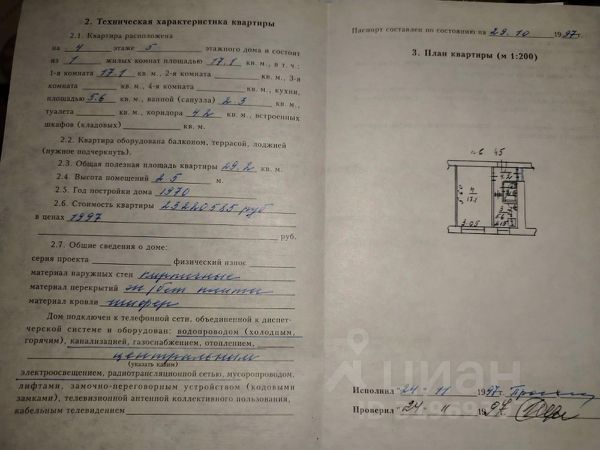 2. Техническая характеристика квартиры
2.1. Квартира расположена
на 4 этаже 5 этажного дома и состоит
из 1 жилых комнат площадью 17.1 кв. м., в т. ч.:
1-я комната 17.1 кв. м., 2-я комната кв. м., 3-я
комната кв. м., 4-я комната кв. м., кухни,
площадью 5.6 кв. м., ванной (санузла) 2.3 кв. м.,
туалета кв. м., коридора 4.2 кв. м., встроенных
шкафов (кладовых) кв. м.
2.2. Квартира оборудована балконом, террасой, лоджией
(нужное подчеркнуть).
2.3. Общая полезная площадь квартиры 29.2 кв. м.
2.4. Высота помещений 2.5 м.
2.5. Год постройки дома 1970
2.6. Стоимость квартиры 23220585 руб
в ценах 1997
руб.
2.7. Общие сведения о доме:
серия проекта физический износ
материал наружных стен кирпичные
материал перекрытий ж/бет плиты
материал кровли шифер
Дом подключен к телефонной сети, объединенной к диспет-
черской системе и оборудован: водопроводом (холодным,
горячим), канализацией, газоснабжением, отоплением,
центральным
(указать каким)
электроосвещением, радиотрансляционной сетью, мусоропроводом,
лифтами, замочно-переговорным устройством (кодовыми
замками), телевизионной антенной коллективного пользования,
кабельным телевидением
Паспорт составлен по состоянию на 29.10 1997г.
3. План квартиры (м 1:200)
45
4
17.1
5.60
3.05
циан
Исполнил "24" 11 1997г.
Проверил "24" 11 1997г.